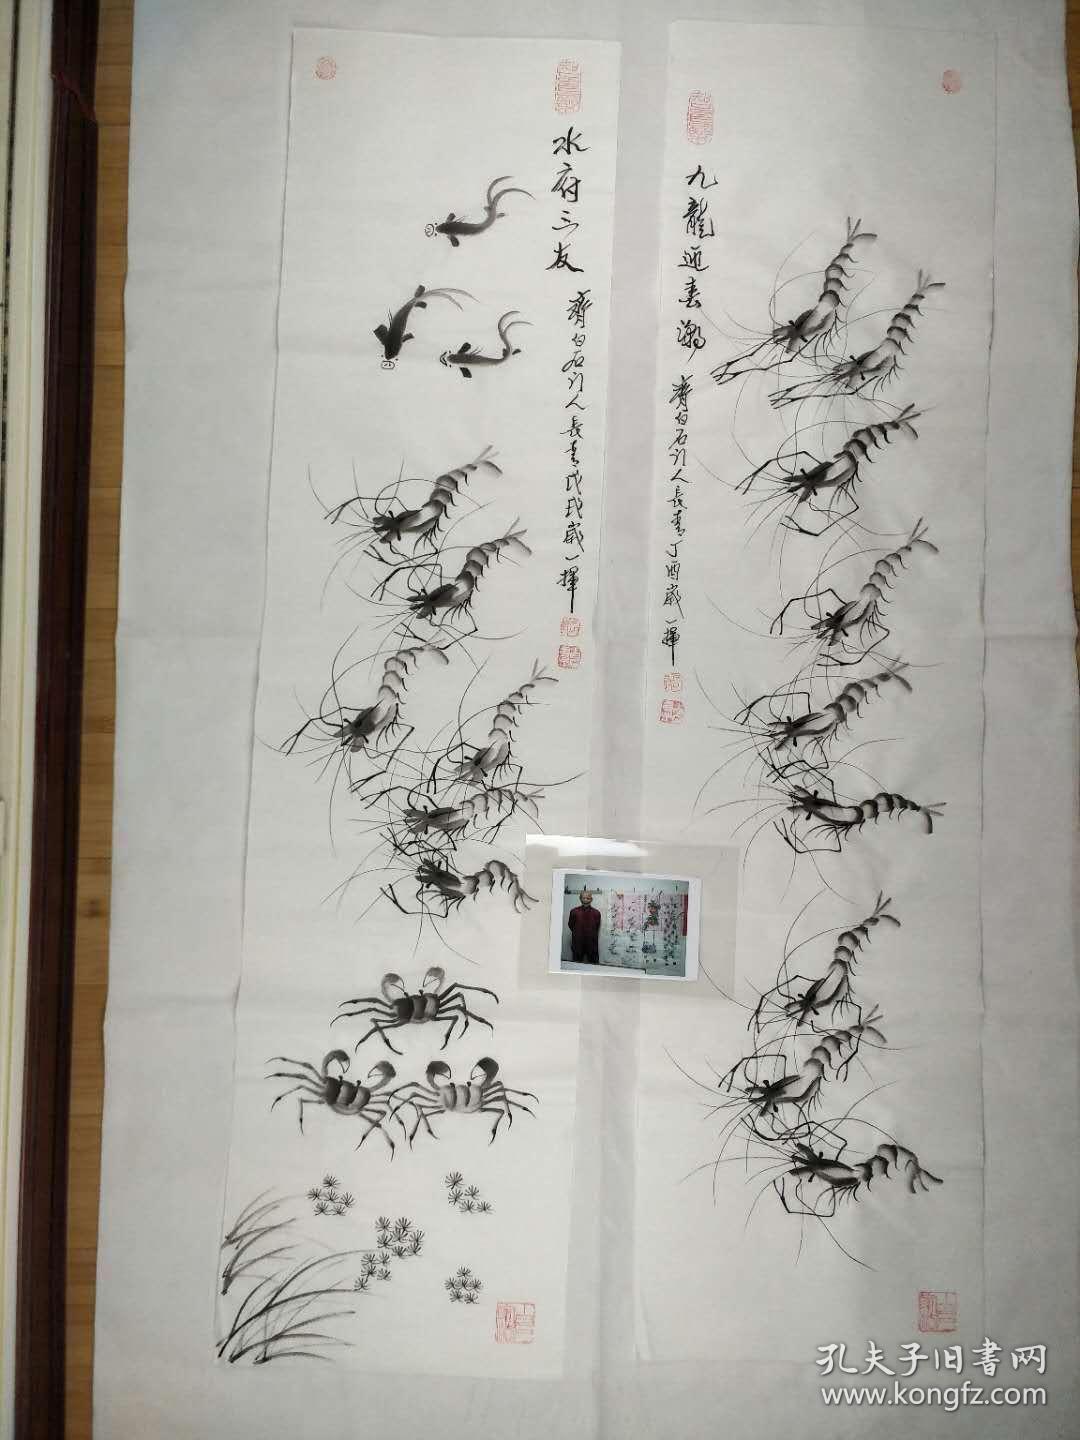 九龍迎春潮
齊白石门人長青丁酉歲一揮
水府三友
齊白石门人長青戊戌歲一揮
孔夫子旧書网
www.kongfz.com